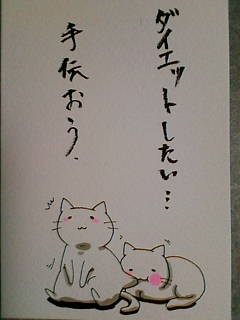 ダイエットしたい…
手伝おう。